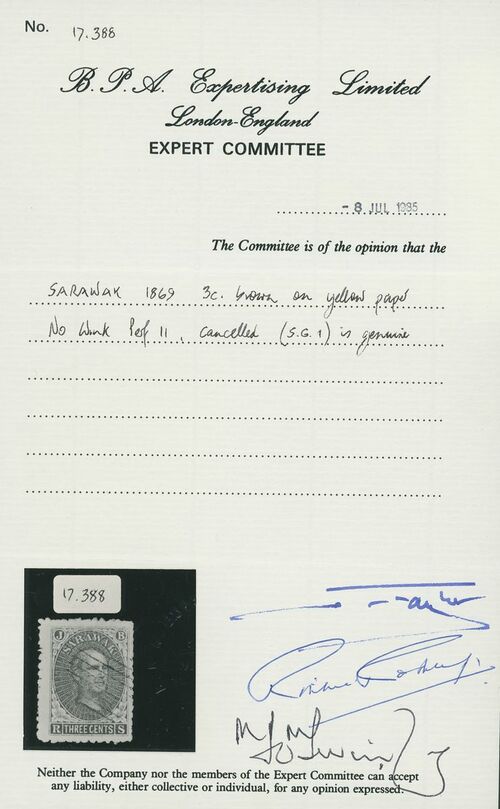 No. 17.388
B.P.A. Expertising Limited
London-England
EXPERT COMMITTEE
- 8 JUL 1985
The Committee is of the opinion that the
SARAWAK 1869 3c. brown on yellow paper
No Wmk Perf 11, cancelled (S.G.1) is genuine
17.388
J B
SARAWAK
R THREE CENTS S
Neither the Company nor the members of the Expert Committee can accept
any liability, either collective or individual, for any opinion expressed.